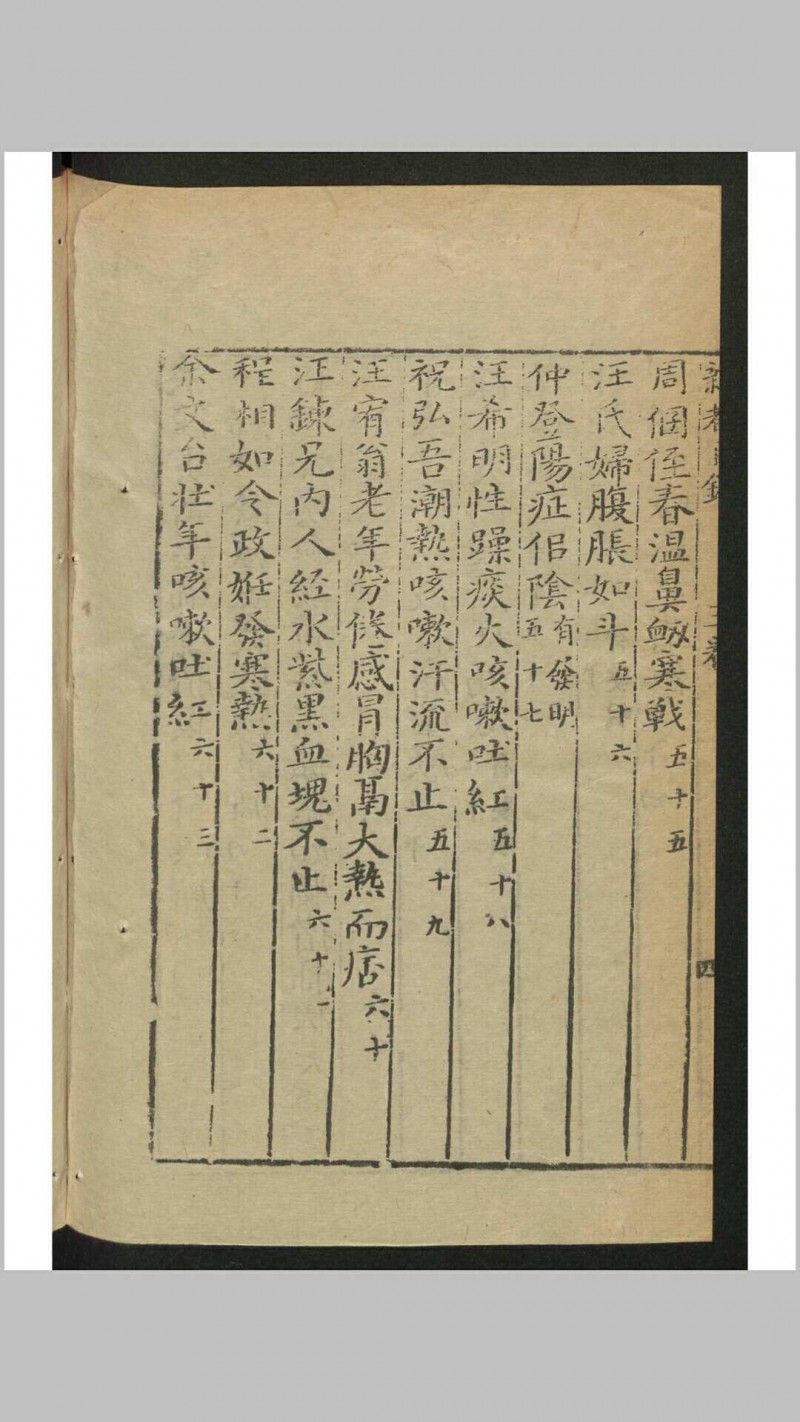 周個侄春溫鼻衂寒戰五十五
汪氏婦腹脹如斗五十六
仲登陽症侣陰有發明五十七
汪希明性躁痰火咳嗽吐紅五十八
祝弘吾潮熱咳嗽汗流不止五十九
汪宥翁老年勞倦感冒胸鬲大熱而痞六十
江鍊兄內人經水紫黑血塊不止六十一
程相如令政姙發寒熱六十二
余文台壯年咳嗽吐紅六十三
四